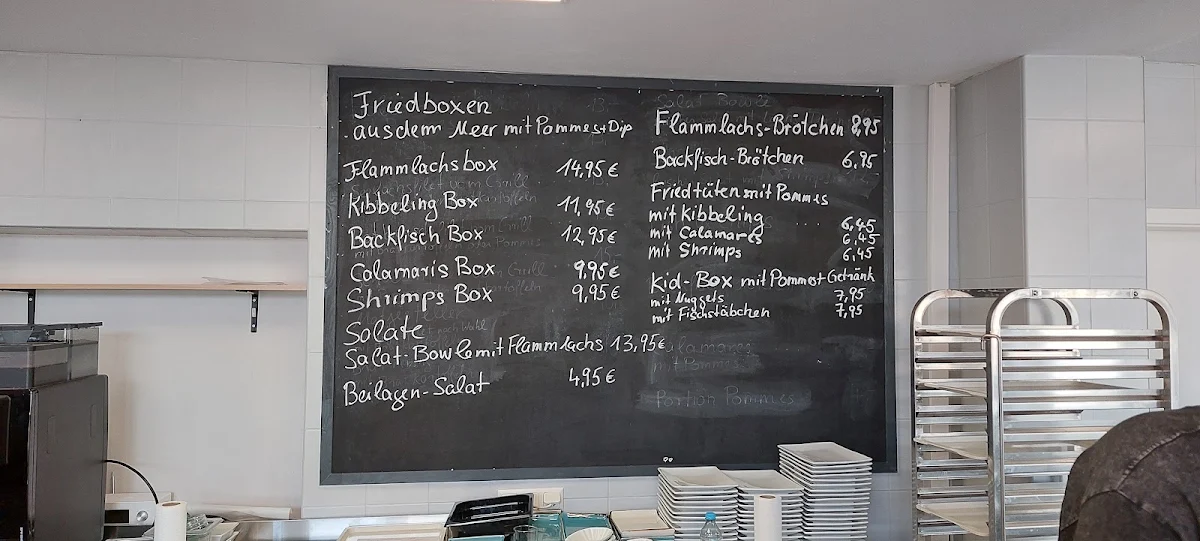 Friedboxen
aus dem Meer mit Pommes + Dip
Flammlachsbox 14,95€
Kibbeling Box 11,95€
Backfisch Box 12,95€
Calamaris Box 9,95€
Shrimps Box 9,95€
Salate
Salat-Bowle mit Flammlachs 13,95€
Beilagen-Salat 4,95€
Flammlachs-Brötchen 8,95
Backfisch-Brötchen 6,95
Friedtüten mit Pommes
mit Kibbeling 6,45
mit Calamares 6,45
mit Shrimps 6,45
Kid-Box mit Pommes + Getränk
mit Nuggets 7,95
mit Fischstäbchen 7,95
Portion Pommes